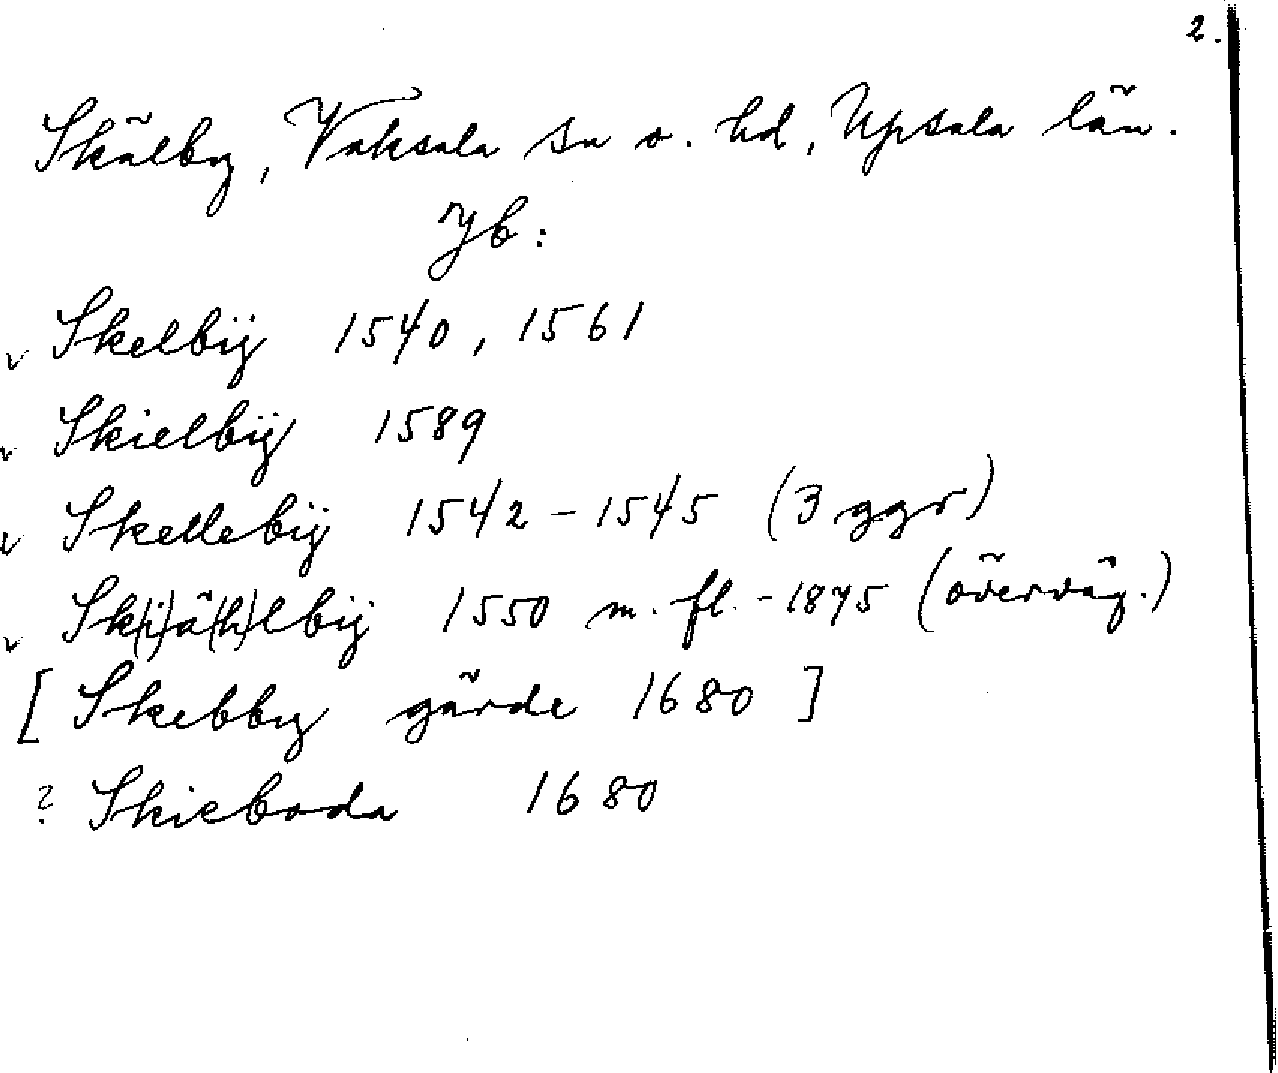 2.
Skälby, Vaksala sn o. hd, Upsala län.
Jb:
v Skelbÿ 1540, 1561
v Skielbÿ 1589
v Skellebÿ 1542-1545 (3 ggr)
v Sk(i)ä(h)lbÿ 1550 m. fl. - 1875 (överväg.)
[Skebby gärde 1680]
? Skieboda 1680